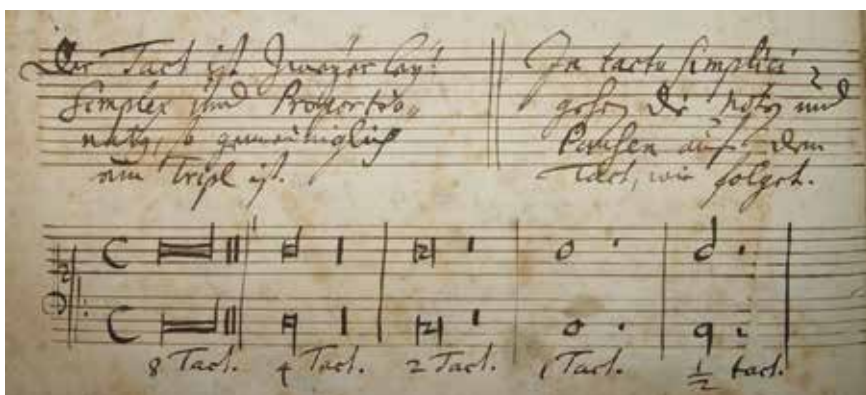 Der Tact ist Zweyerley:
Simplex und Proportio„
so gemeiniglich
ein Tripl ist.
In tactu simplici
gehen die Noten und
Pausen auf dem
Tact, wie folget.
8 Tact. 4 Tact. 2 Tact. 1 Tact. ½ tact.